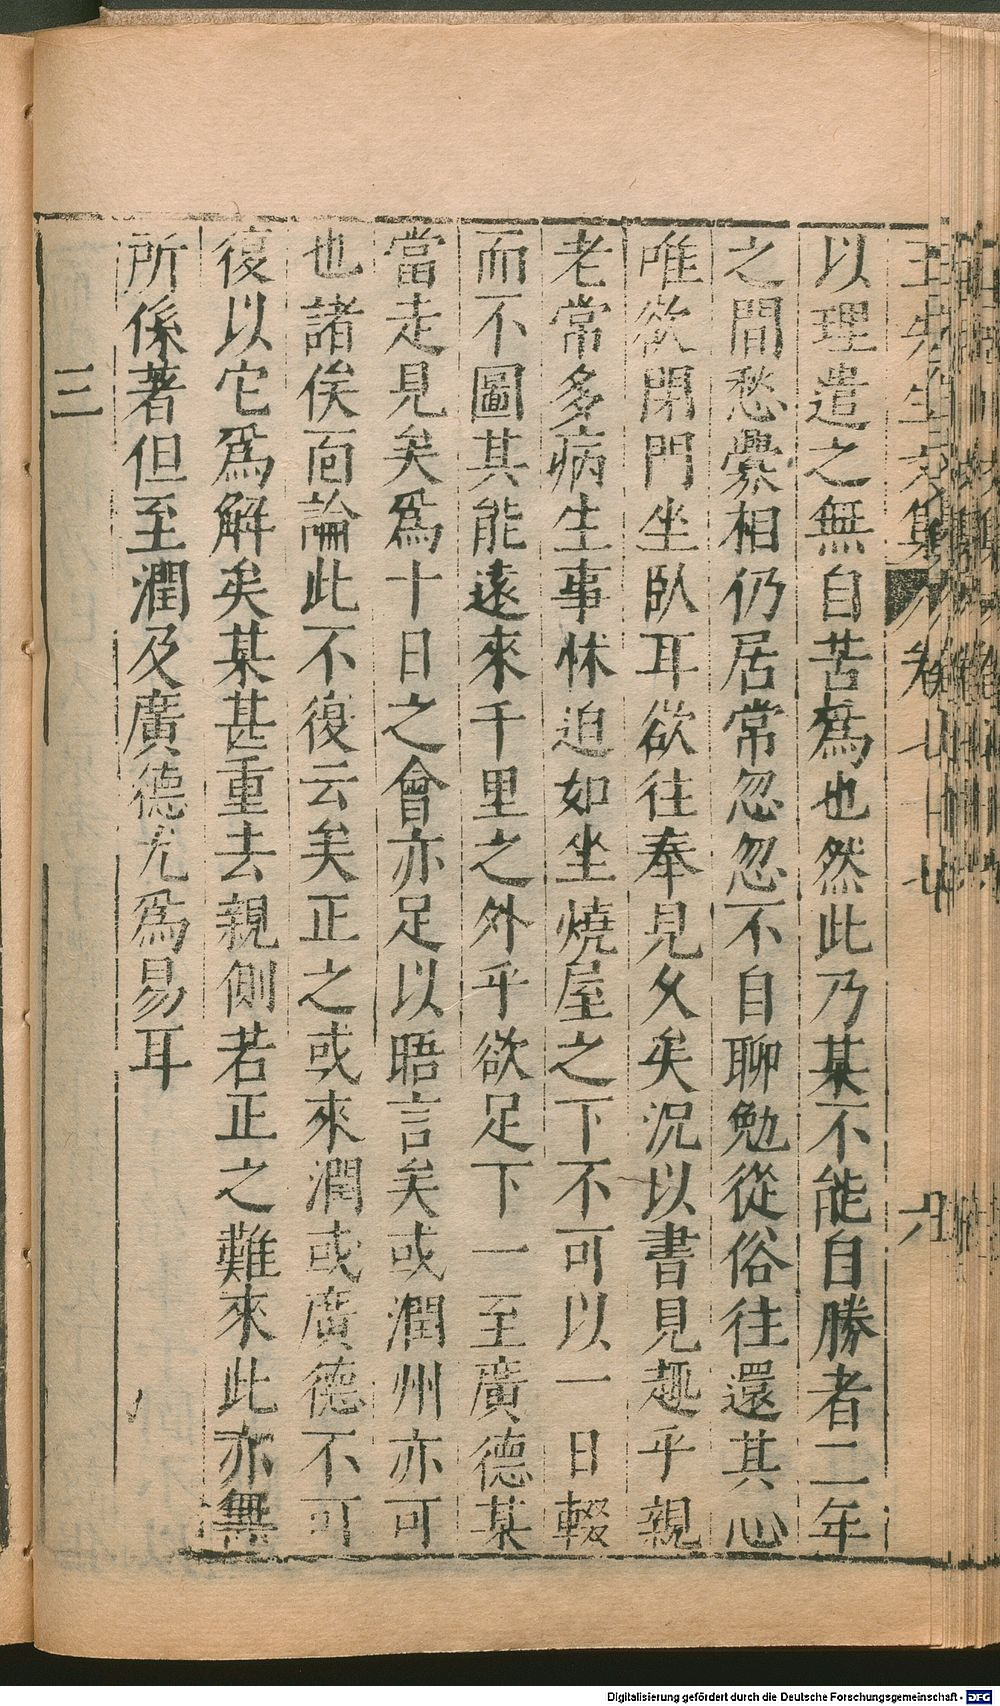 王先生文集 卷七十七 六
以理遣之無自苦爲也然此乃某不能自勝者二年
之間愁釁相仍居常忽忽不自聊勉從俗往還其心
唯欲閉門坐臥耳欲往奉見久矣況以書見趣乎親
老常多病生事怵迫如坐燒屋之下不可以一日輟
而不圖其能遠來千里之外乎欲足下一至廣德某
當走見矣爲十日之會亦足以晤言矣或潤州亦可
也諸俟面論此不復云矣正之或來潤或廣德不可
復以它爲解矣某甚重去親側若正之難來此亦無
所係著但至潤及廣德尤爲易耳
三
Digitalisierung gefördert durch die Deutsche Forschungsgemeinschaft - DFG